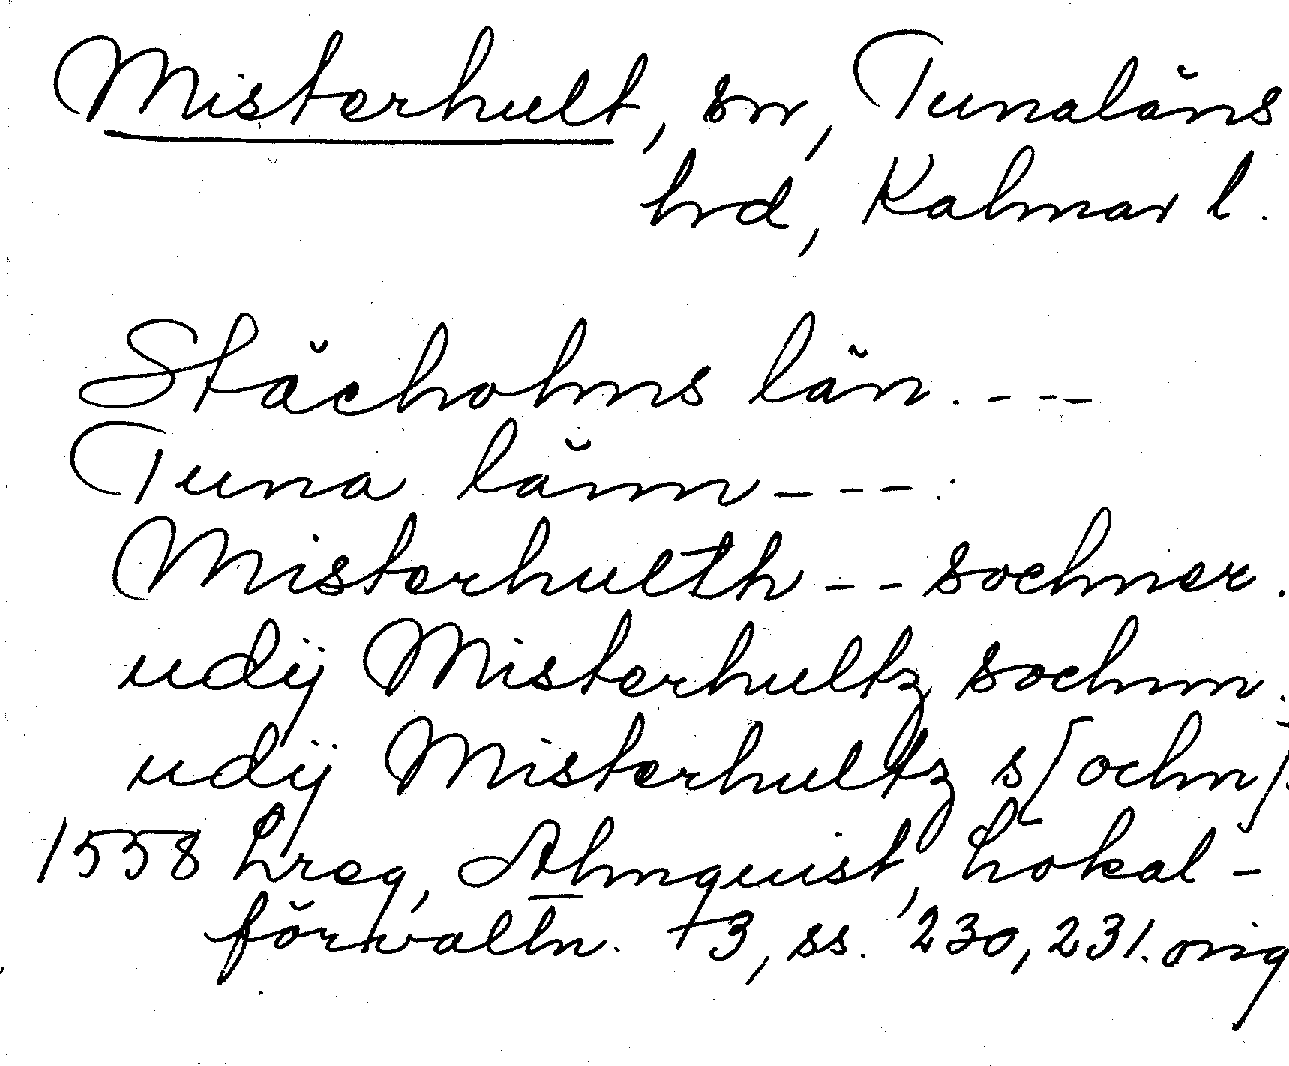 Misterhult, sn, Tunaläns
hrd, Kalmar l.
Stächolms län. ---
Tuna länn ---.
Misterhulth -- sochner.
udij Misterhultz sochnn.
udij Misterhultz s[ochn].
1558 Lreg, Almquist, Lokal-
förvaltn. +3, ss. 230, 231. orig